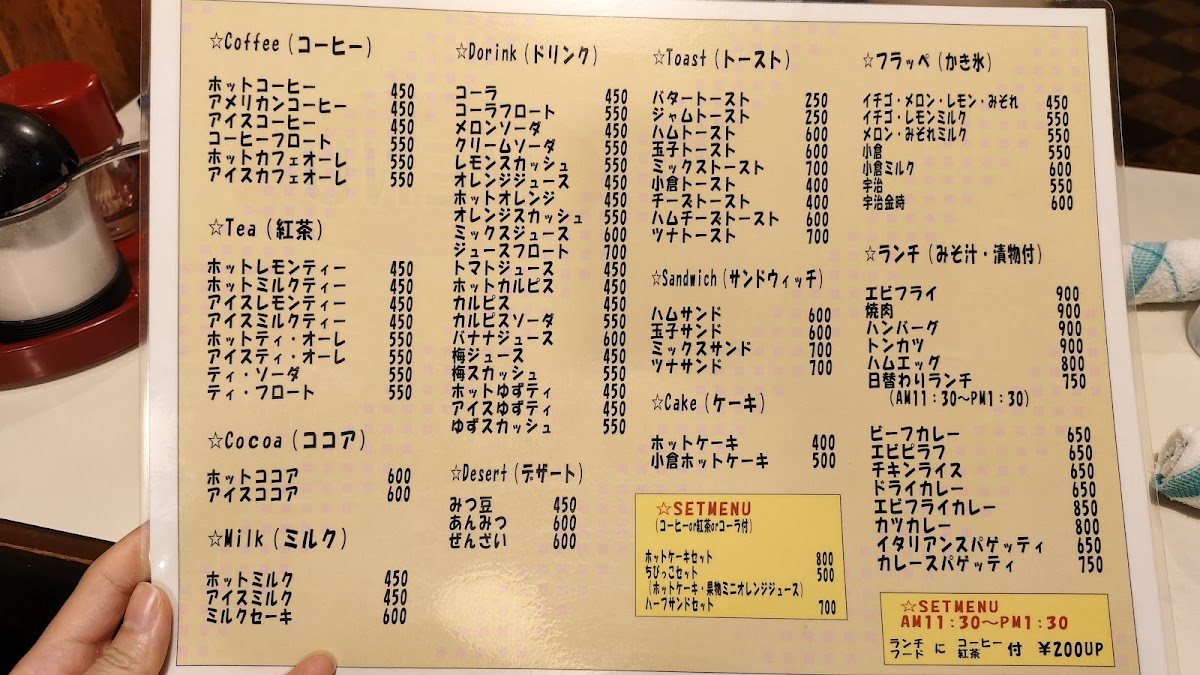 ☆Coffee(コーヒー)
ホットコーヒー 450
アメリカンコーヒー 450
アイスコーヒー 450
コーヒーフロート 550
ホットカフェオーレ 550
アイスカフェオーレ 550
☆Tea(紅茶)
ホットレモンティー 450
ホットミルクティー 450
アイスレモンティー 450
アイスミルクティー 450
ホットティ・オーレ 550
アイスティ・オーレ 550
ティ・ソーダ 550
ティ・フロート 550
☆Cocoa(ココア)
ホットココア 600
アイスココア 600
☆Milk(ミルク)
ホットミルク 450
アイスミルク 450
ミルクセーキ 600
☆Dorink(ドリンク)
コーラ 450
コーラフロート 550
メロンソーダ 450
クリームソーダ 550
レモンスカッシュ 550
オレンジジュース 450
ホットオレンジ 450
オレンジスカッシュ 550
ミックスジュース 600
ジュースフロート 700
トマトジュース 450
ホットカルピス 450
カルピス 450
カルピスソーダ 550
バナナジュース 600
梅ジュース 450
梅スカッシュ 550
ホットゆずティ 450
アイスゆずティ 450
ゆずスカッシュ 550
☆Desert(デザート)
みつ豆 450
あんみつ 600
ぜんざい 600
☆Toast(トースト)
バタートースト 250
ジャムトースト 250
ハムトースト 600
玉子トースト 600
ミックストースト 700
小倉トースト 400
チーズトースト 400
ハムチーズトースト 600
ツナトースト 700
☆Sandwich(サンドウィッチ)
ハムサンド 600
玉子サンド 600
ミックスサンド 700
ツナサンド 700
☆Cake(ケーキ)
ホットケーキ 400
小倉ホットケーキ 500
☆SETMENU
(コーヒーor紅茶orコーラ付)
ホットケーキセット 800
ちびっこセット 500
(ホットケーキ・果物ミニオレンジジュース)
ハーフサンドセット 700
☆フラッペ(かき氷)
イチゴ・メロン・レモン・みぞれ 450
イチゴ・レモンミルク 550
メロン・みぞれミルク 550
小倉 550
小倉ミルク 600
宇治 550
宇治金時 600
☆ランチ(みそ汁・漬物付)
エビフライ 900
焼肉 900
ハンバーグ 900
トンカツ 900
ハムエッグ 800
日替わりランチ 750
(AM11:30~PM1:30)
ビーフカレー 650
エビピラフ 650
チキンライス 650
ドライカレー 650
エビフライカレー 850
カツカレー 800
イタリアンスパゲッティ 650
カレースパゲッティ 750
☆SETMENU
AM11:30~PM1:30
ランチ フード に コーヒー 紅茶 付 ¥200UP